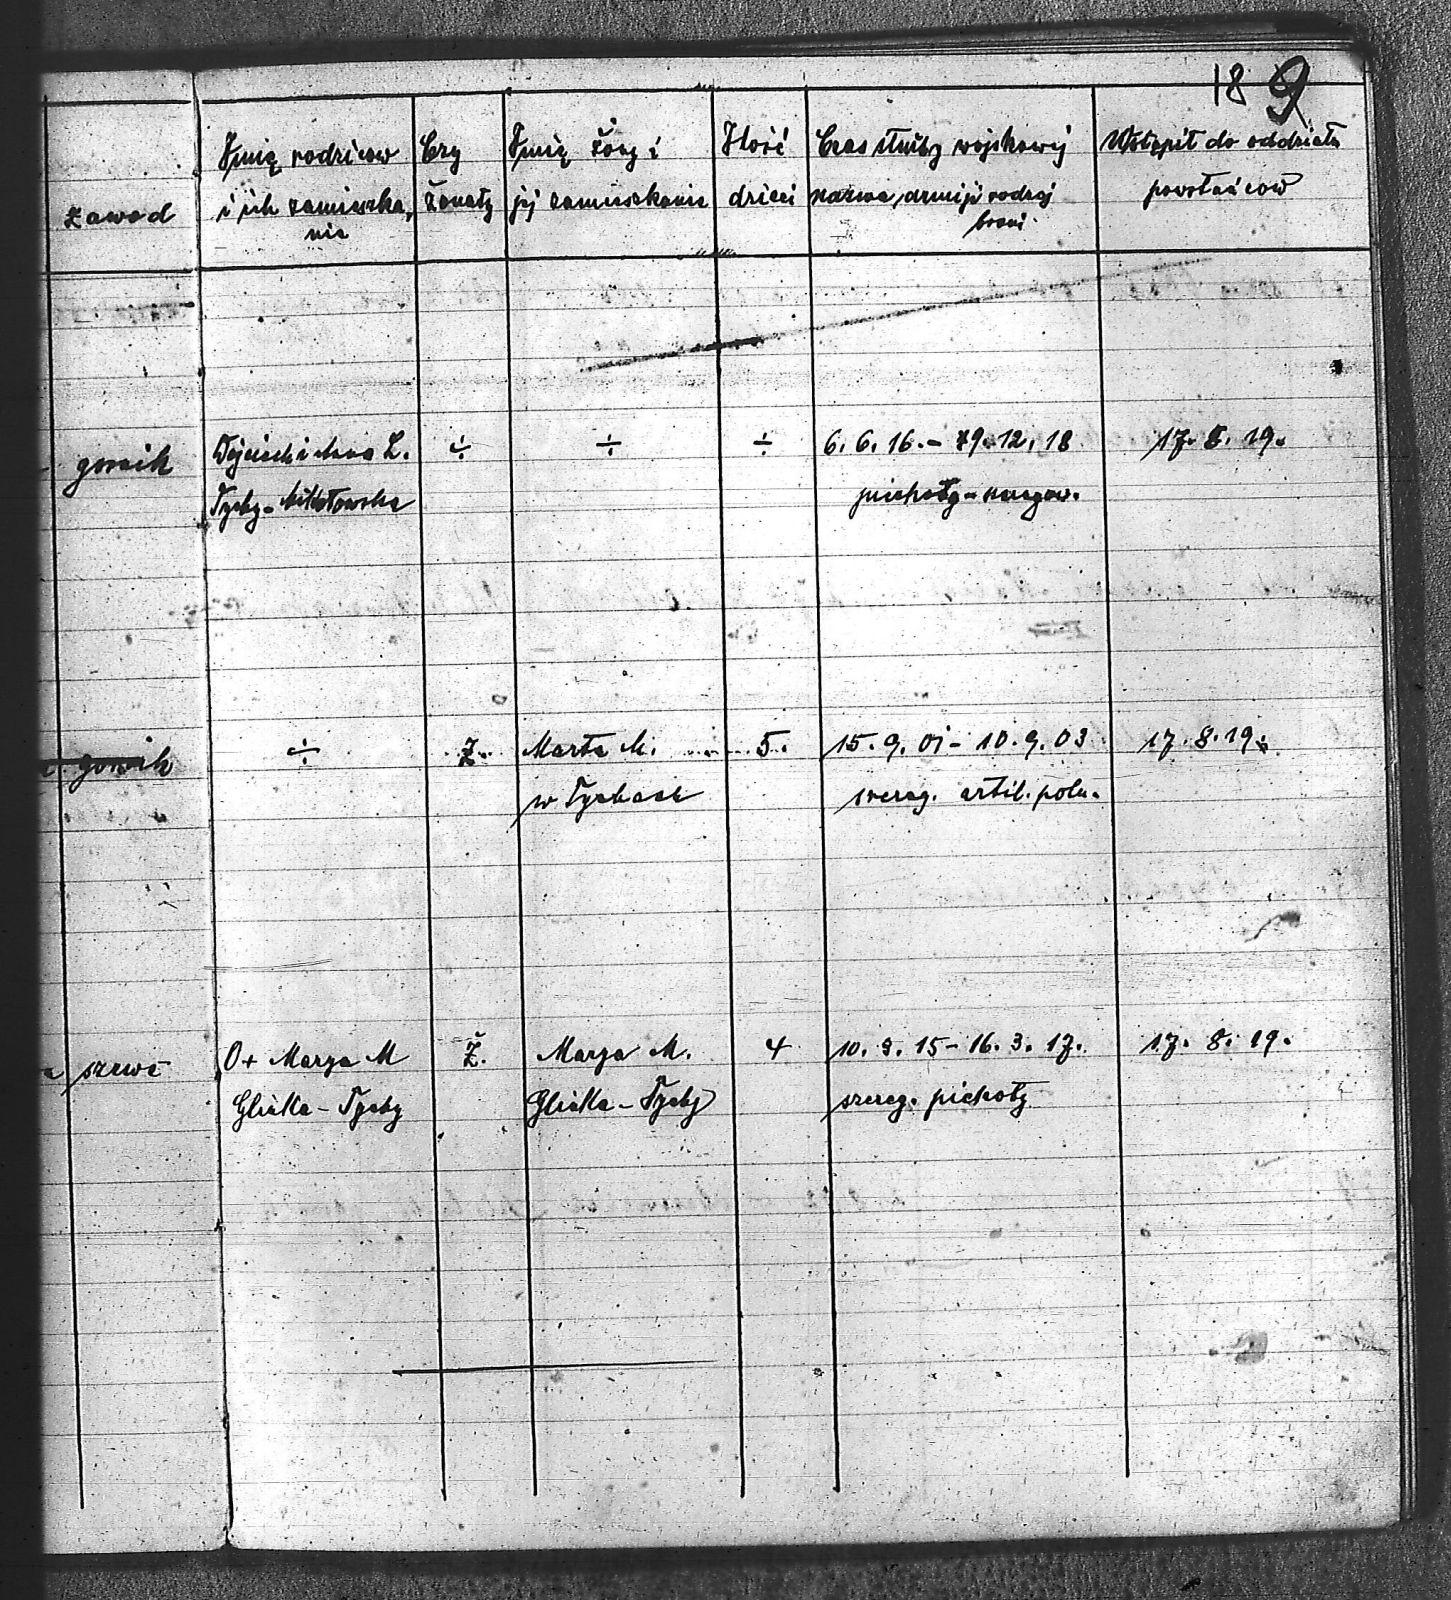 18 9
zawod
Imię rodzicow
i ich zamieszka,
nie
Czy
Żonaty
Imię żony i
jej zamieszkanie
Ilość
dzieci
Czas służby wojskowej
nazwa, armiji rodzaj
broni
Wstąpił do oddziału
powstańcow
gornik
Wojciech i Anna L.
Tychy - Mikołowska
÷
÷
÷
6. 6. 16. - 29. 12. 18
piechoty -
17. 8. 19.
gornik
÷
Ż.
Marta M.
w Tychach
5.
15. 9. 01 - 10. 9. 03
szereg. artil. poln.
17. 8. 19.
szewc
O+ Marya M
Glinka - Tychy
Ż.
Marya M.
Glinka - Tychy
4
10. 9. 15 - 16. 3. 17.
szereg. piechoty
17. 8. 19.